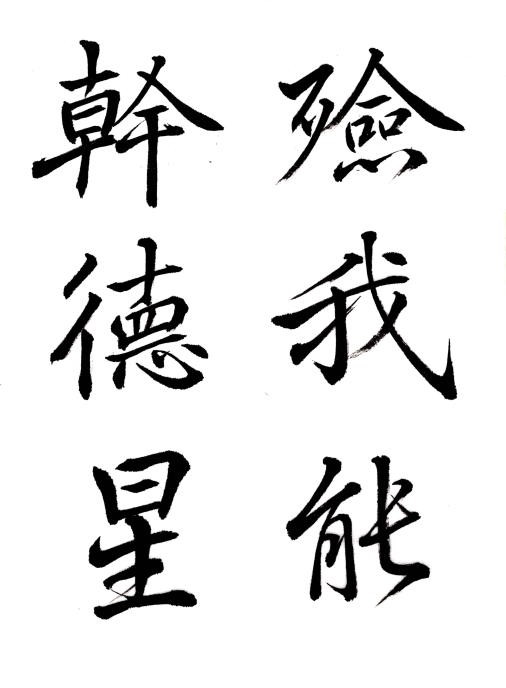 殮我能
幹德星